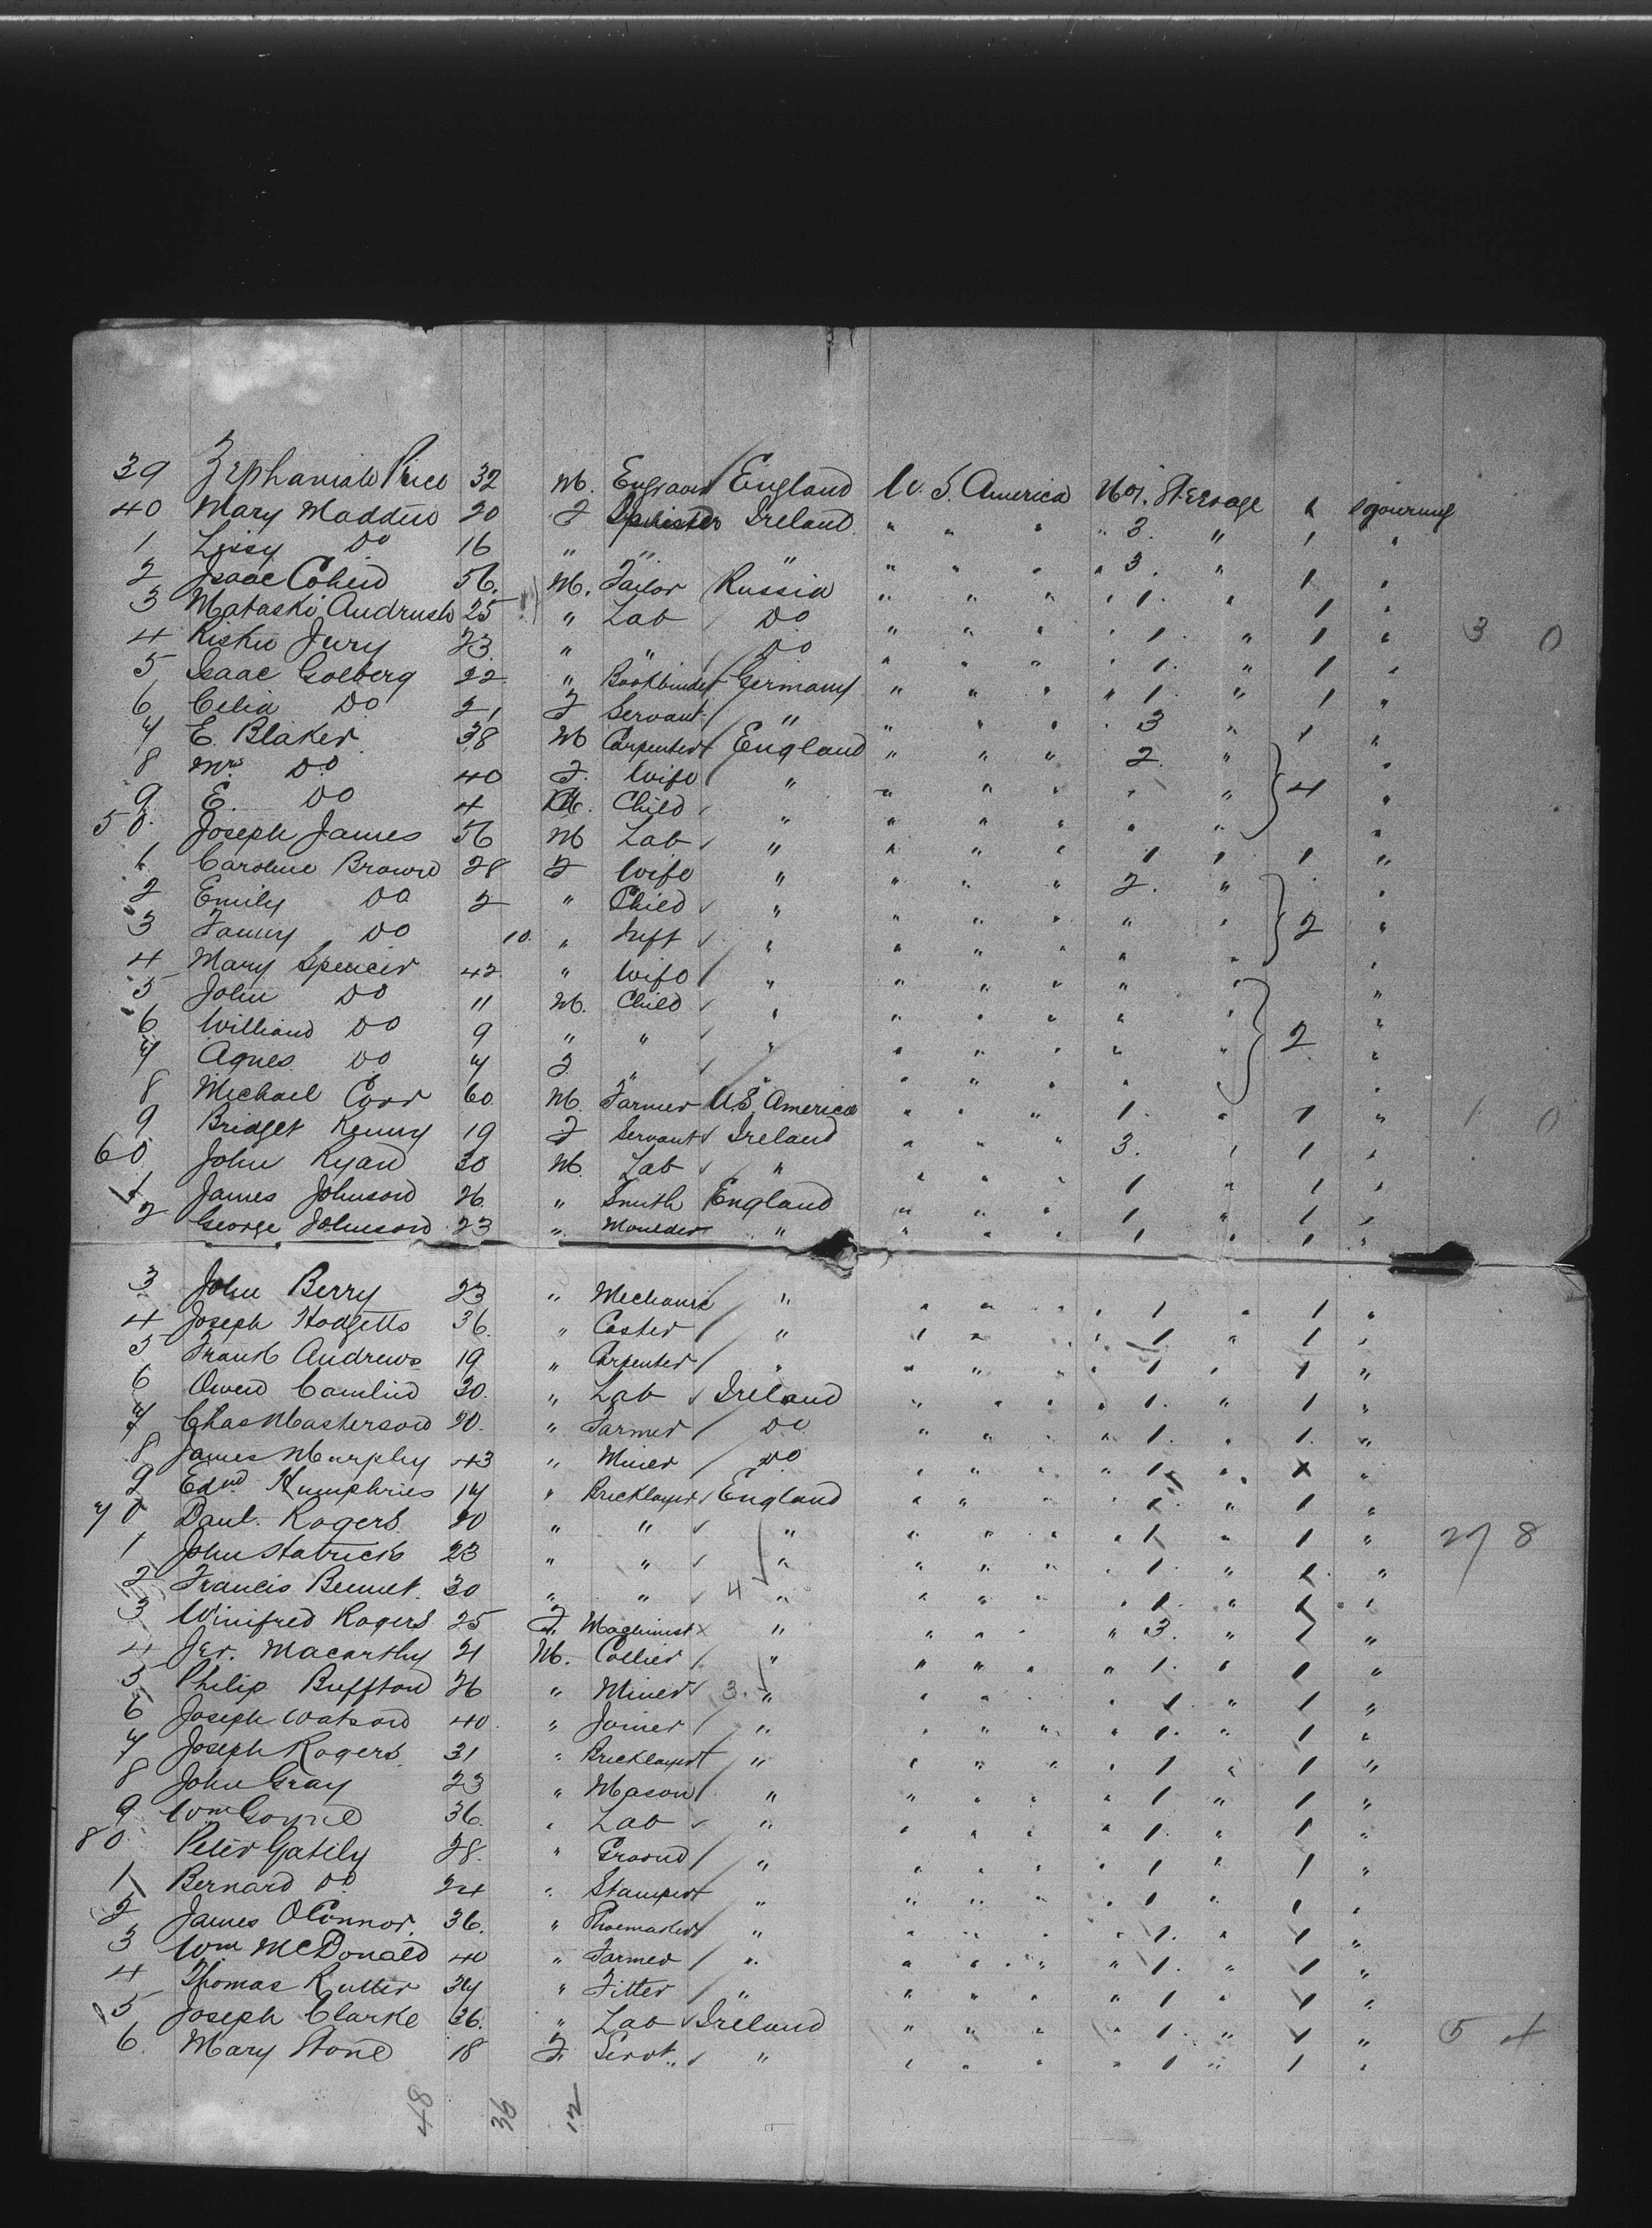 39 Zephaniah Price 32 M. Engraver England U. S. America No 1. Steerage 1 Sojourning
40 Mary Madden 20 F Spinster Ireland " " " " 3. " 1 "
1 Lissy Do 16 " " " " " " " 3. " 1 "
2 Isaac Cohen 56. M. Tailor Russia " " " " 1. " 1 "
3 Mataski Andrush 25 " Lab Do " " " " 1. " 1 " 3 0
4 Risku Jury 23. " " Do " " " " 1. " 1 "
5 Isaac Golberg 22 " Bookbinder Germany " " " " 1. " 1 "
6 Celia Do 21 F Servant " " " " " 3 " 1 "
7 E. Blaker 38 M Carpenter England " " " 2. " "
8 Mrs Do 40 F. Wife " " " " " " 4 "
9 E. Do 4 M. Child " " " " " " "
50. Joseph James 56 M Lab " " " " 1 " 1 "
1 Caroline Brown 28 F Wife " " " " 2. " "
2 Emily Do 2 " Child " " " " " " 2 "
3 Fanny Do 10. " Inft " " " " " " "
4 Mary Spencer 42 " Wife " " " " " " "
5 John Do 11 M. Child " " " " " " "
6 William Do 9 " " " " " " " " 2 "
7 Agnes Do 7 F. " " " " " " " "
8 Michael Corr 60 M. Farmer U.S. America " " " 1. " 1 " 1 0
9 Bridget Kenny 19 F Servant Ireland " " " 3. " 1 "
60 John Ryan 30 M. Lab " " " " 1 " 1 "
1 James Johnson 26. " Smith England " " " 1 " 1 "
2 George Johnson 23 " Moulder " " " " 1 " 1 "
3 John Berry 23 " Mechanic " " " " " 1 " 1 "
4 Joseph Hodgetts 36. " Caster " " " " 1 " 1 "
5 Frank Andrews 19 " Carpenter " " " " " 1 " 1 "
6 Owen Camlin 30. " Lab Ireland " " " " 1. " 1 "
7 Chas Masterson 20. " Farmer Do " " " 1. " 1. "
8 James Murphy 43 " Miner Do " " " " 1. " 1 "
9 Edwd Humphries 17 " Bricklayer England " " " 1. " 1 "
70 Danl. Rogers. 20 " " " " " " 1 " 1 " 27 8
1 John 23 " " " " " " 1. " 1. "
2 Francis Bennet. 30 " " 4 " " " " 1. " 1 "
3 Winifred Rogers 25 F. Machinist " " " " 3. " 1 "
4 Jer. Macarthy 21 M. Collier " " " " " 1. " 1 "
5 Philip Buffton 26 " Miner 3. " " " " 1. " 1 "
6 Joseph Watson 40. " Joiner " " " " " 1. " 1 "
7 Joseph Rogers. 31 " Bricklayer " " " " 1 " 1 "
8 John Gray 23 " Mason " " " " " 1 " 1 "
9 Wm 36. " Lab " " " " " 1. " 1 "
80. Peter Gatily 28. " Groom " " " " " 1 " 1 "
1 Bernard Do 24 " Stamper " " " " " 1 " 1 "
2 James O'Connor. 36. " Shoemaker " " " " " 1. " 1 "
3 Wm McDonald 40 " Farmer " " " " " 1. " 1 "
4 Thomas Rutter 37 " Fitter " " " " " 1 " 1 "
5 Joseph Clarke 36. " Lab Ireland " " " " 1. " 1 " 5 4
6. Mary Stone 18 F. Servt. " " " " " 1 " 1 "
48 36 12